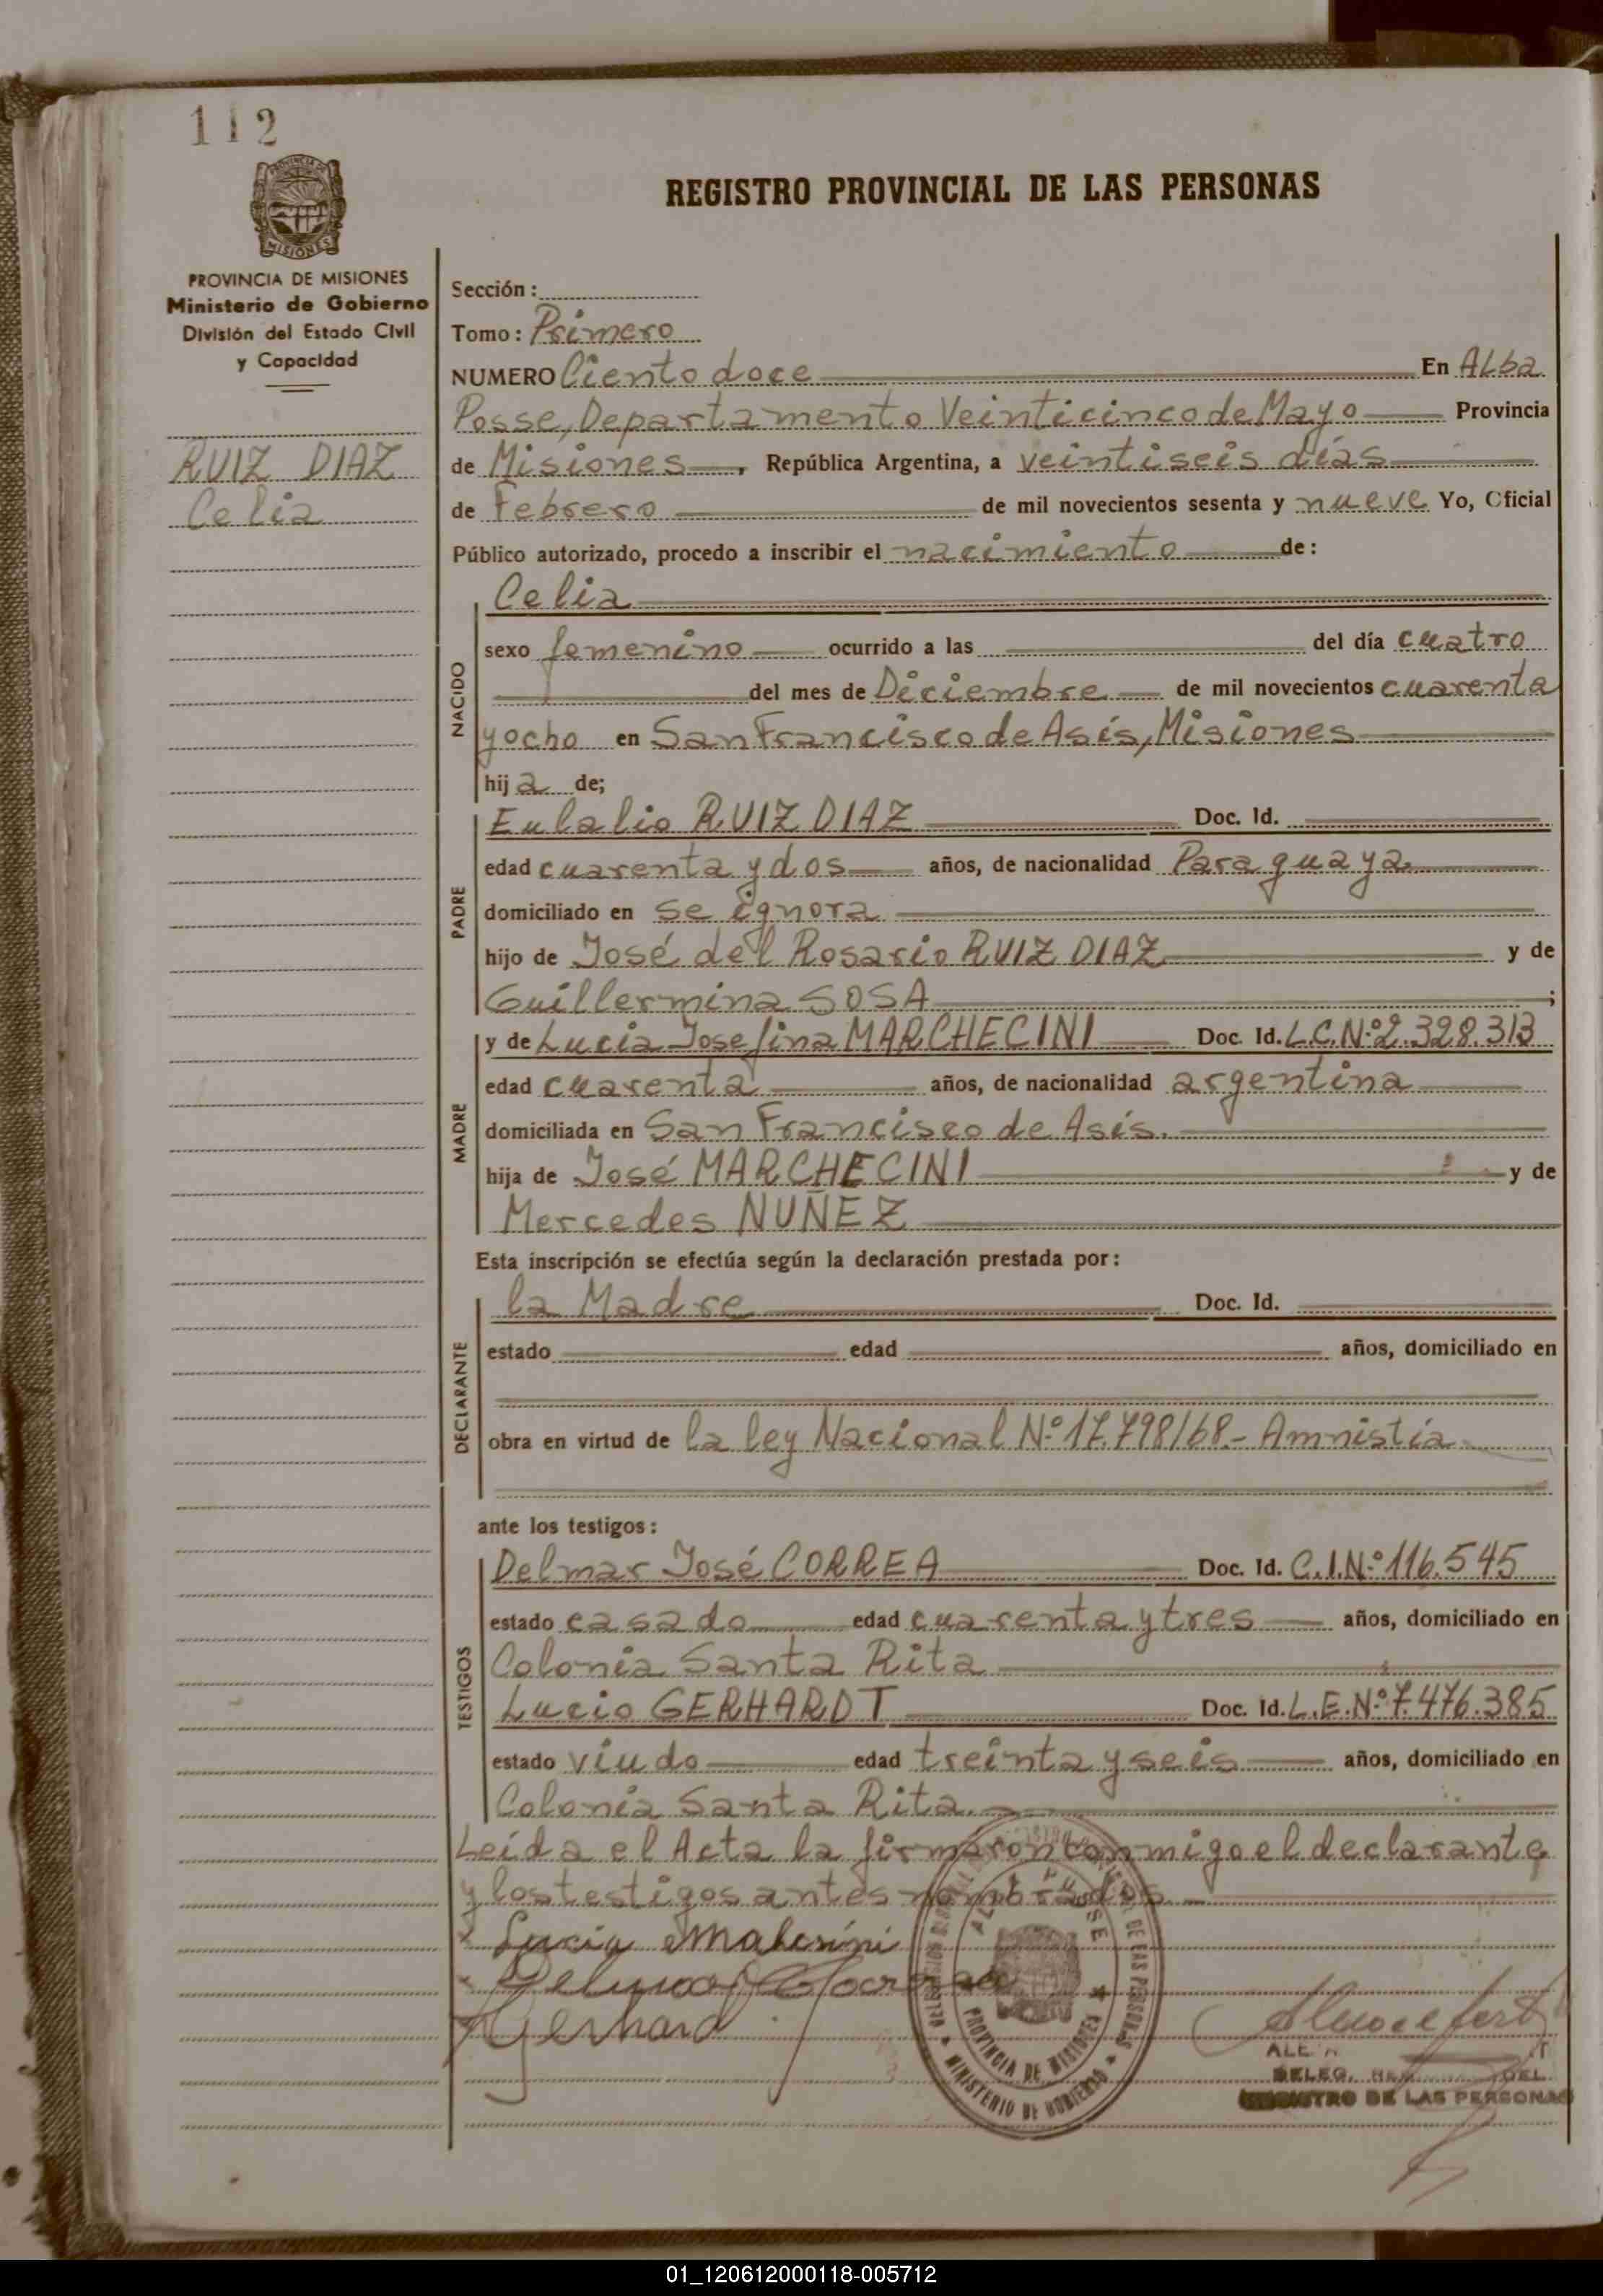 112
PROVINCIA DE
MISIONES
REGISTRO PROVINCIAL DE LAS PERSONAS
PROVINCIA DE MISIONES
Ministerio de Gobierno
División del Estado Civil
y Capacidad
RUIZ DIAZ
Celia
Sección :
Tomo : Primero
NUMERO Ciento doce En Alba
Posse, Departamento Veinticinco de Mayo Provincia
de Misiones, República Argentina, a veintiseis días
de Febrero de mil novecientos sesenta y nueve Yo, Oficial
Público autorizado, procedo a inscribir el nacimiento de :
Celia
NACIDO
sexo femenino ocurrido a las del día cuatro
del mes de Diciembre de mil novecientos cuarenta
y ocho en San Francisco de Asís, Misiones
hija de;
PADRE
Eulalio RUIZ DIAZ Doc. Id.
edad cuarenta y dos años, de nacionalidad Paraguaya
domiciliado en se ignora
hijo de José del Rosario RUIZ DIAZ y de
Guillermina SOSA ;
MADRE
y de Lucia Josefina MARCHECINI Doc. Id. L.C.Nº2.328.313
edad cuarenta años, de nacionalidad argentina
domiciliada en San Francisco de Asís.
hija de José MARCHECINI y de
Mercedes NUÑEZ
Esta inscripción se efectúa según la declaración prestada por :
DECLARANTE
la Madre Doc. Id.
estado edad años, domiciliado en
obra en virtud de la ley Nacional Nº 17.798/68.- Amnistía
ante los testigos :
TESTIGOS
Delmar José CORREA Doc. Id. C.I.Nº 116.545
estado casado edad cuarenta y tres años, domiciliado en
Colonia Santa Rita
Lucio GERHARDT Doc. Id. L.E.Nº 7.476.385
estado viudo edad treinta y seis años, domiciliado en
Colonia Santa Rita.
Leída el Acta la firmaron conmigo el declarante
y los testigos antes nombrados.
Lucia
Gerhard
PROVINCIA DE MISIONES
MINISTERIO DE GOBIERNO
DE LAS PERSONAS
DELEG.
REGISTRO DE LAS PERSONAS
01_120612000118-005712